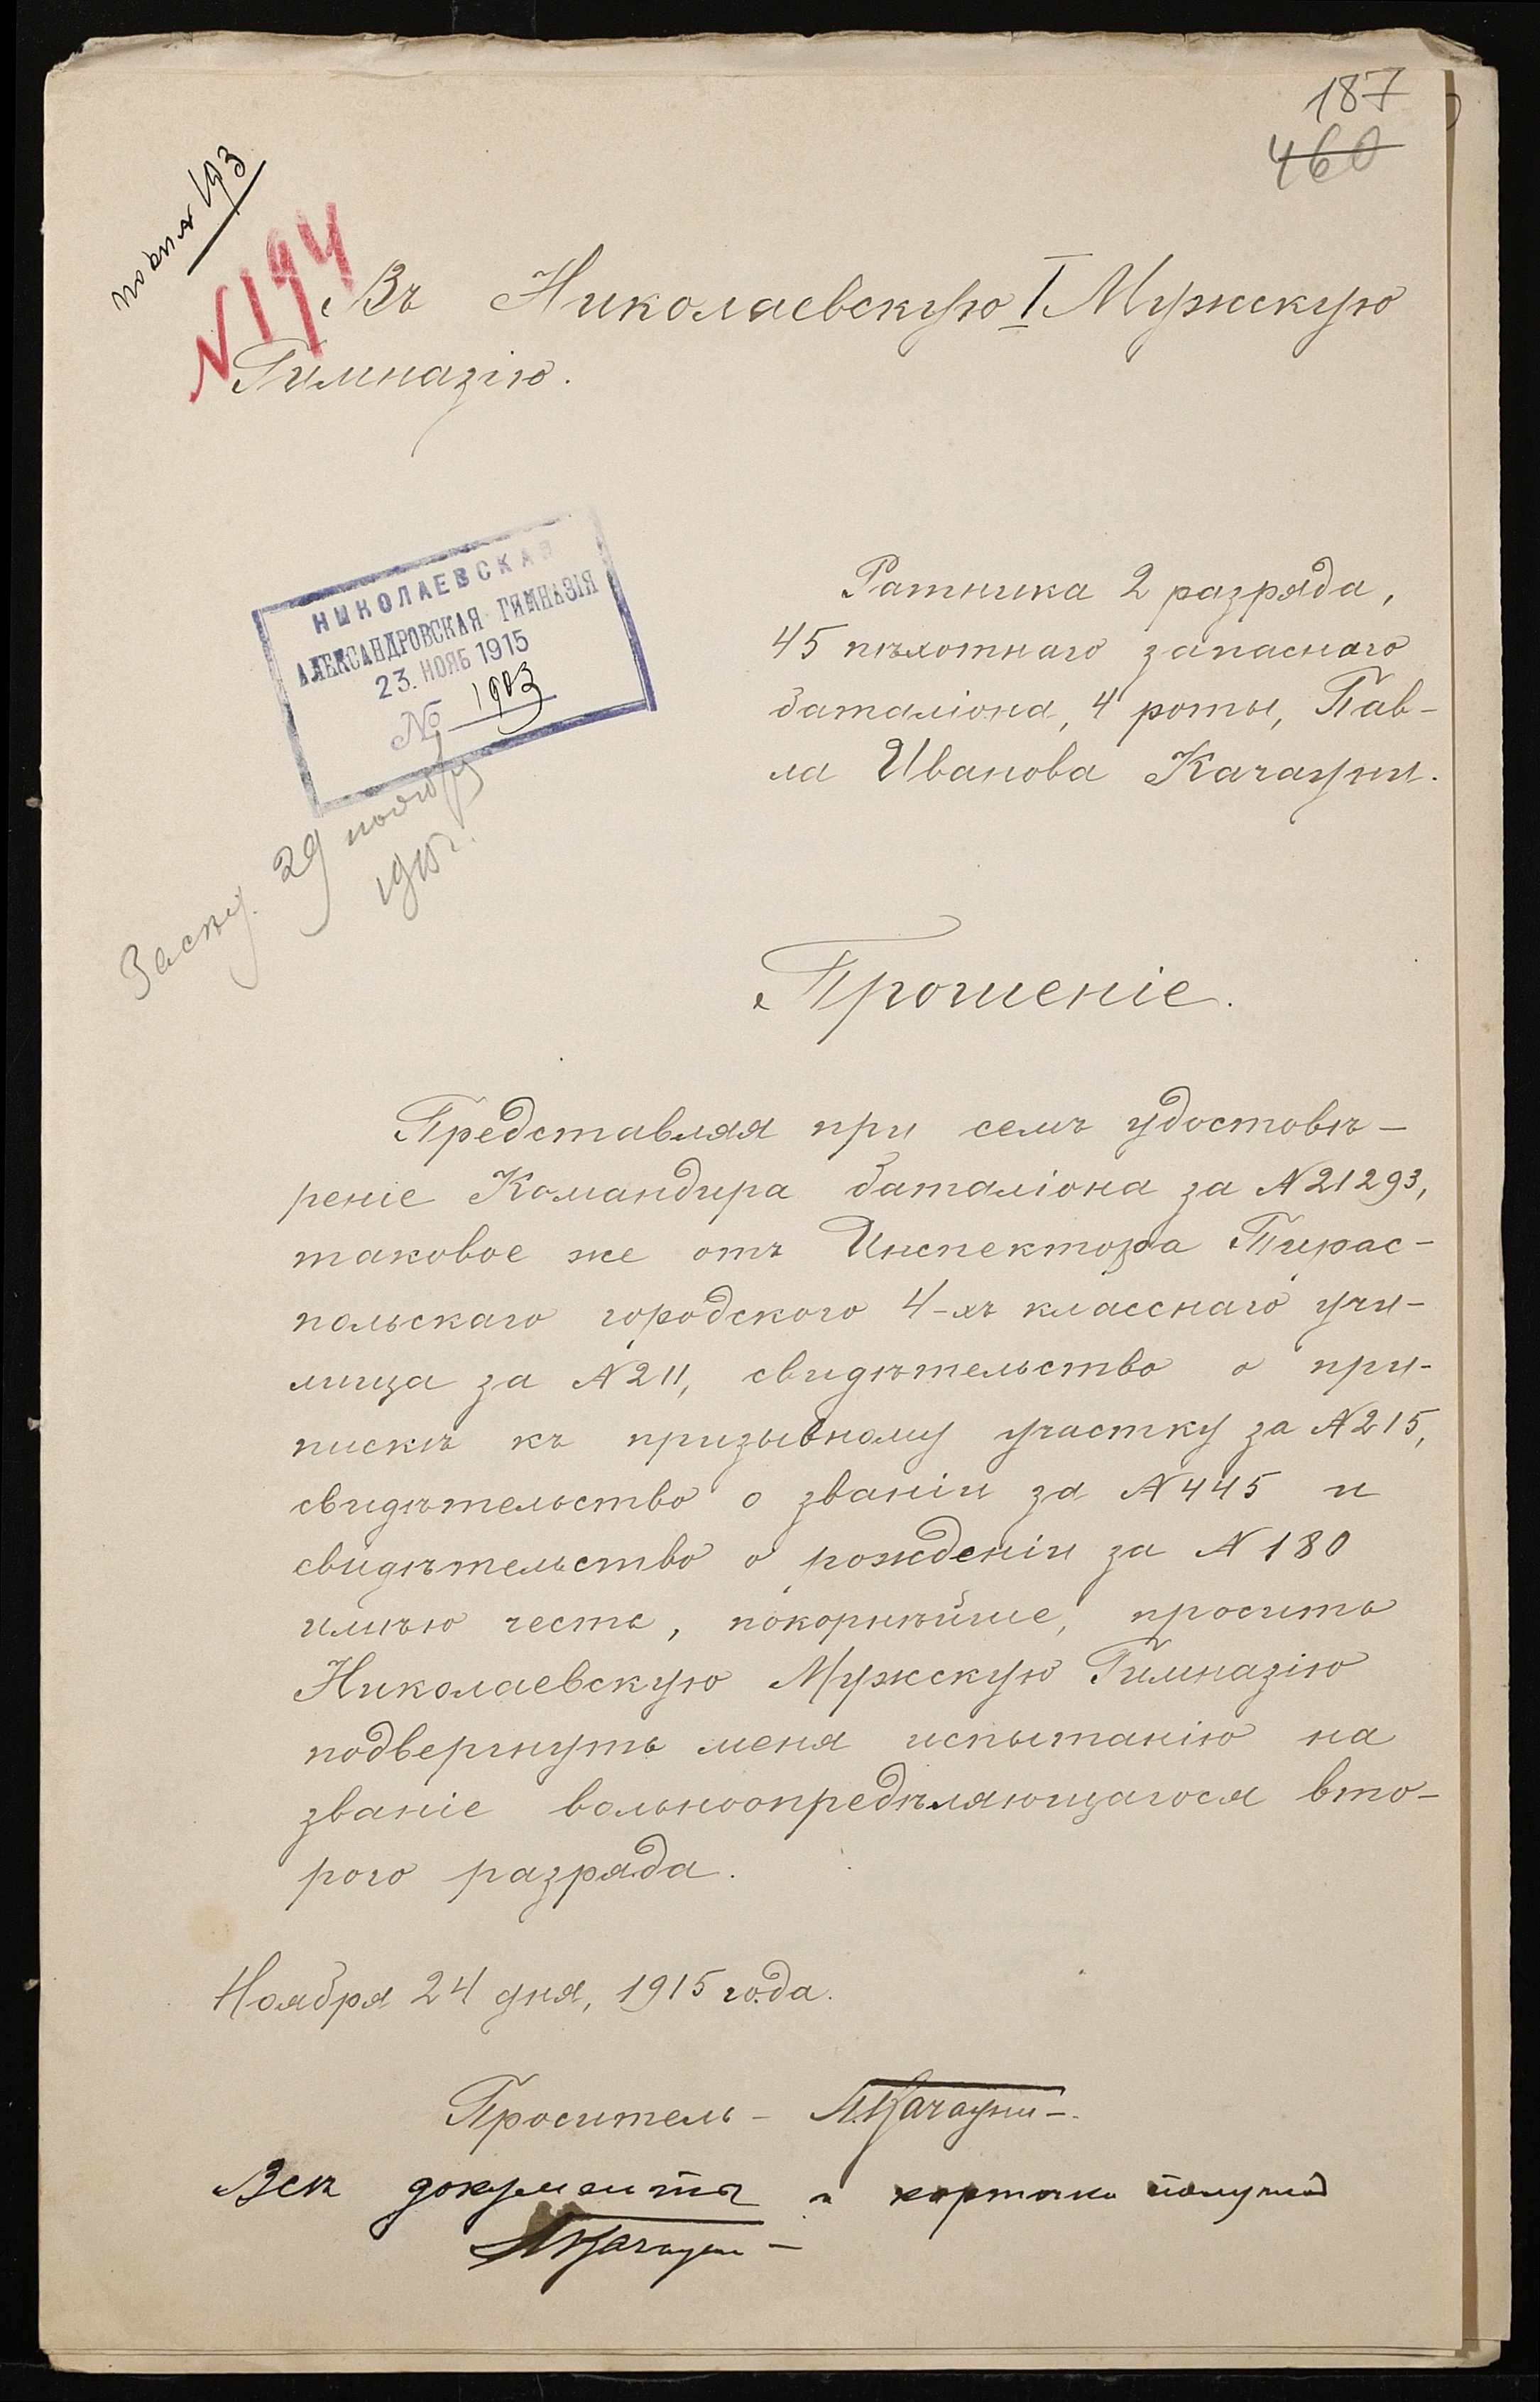 187
460
по кн № 193
№194
Въ Николаевскую I Мужскую
Гимназію.
НИКОЛАЕВСКАЯ
АЛЕКСАНДРОВСКАЯ ГИМНАЗІЯ
23. НОЯБ 1915
№ 1903
29 ноября
1915 г.
Ратника 2 разряда,
45 пѣхотнаго запаснаго
баталіона, 4 роты, Пав-
ла Иванова Качауни.
Прошеніе.
Представляя при семъ удостовѣ-
реніе Командира баталіона за №21293,
таковое же отъ Инспектора Тирас-
польскаго городского 4-хъ класснаго учи-
лища за №211, свидѣтельство о при-
пискѣ къ призывному участку за №215,
свидѣтельство о званіи за №445 и
свидѣтельство о рожденіи за №180
имѣю честь, покорнѣйше, просить
Николаевскую Мужскую Гимназію
подвергнуть меня испытанію на
званіе вольноопредѣляющагося вто-
рого разряда.
Ноября 24 дня, 1915 года.
Проситель – П.Качауни –.
Всѣ документы и карточки получилъ
ПКачауни –